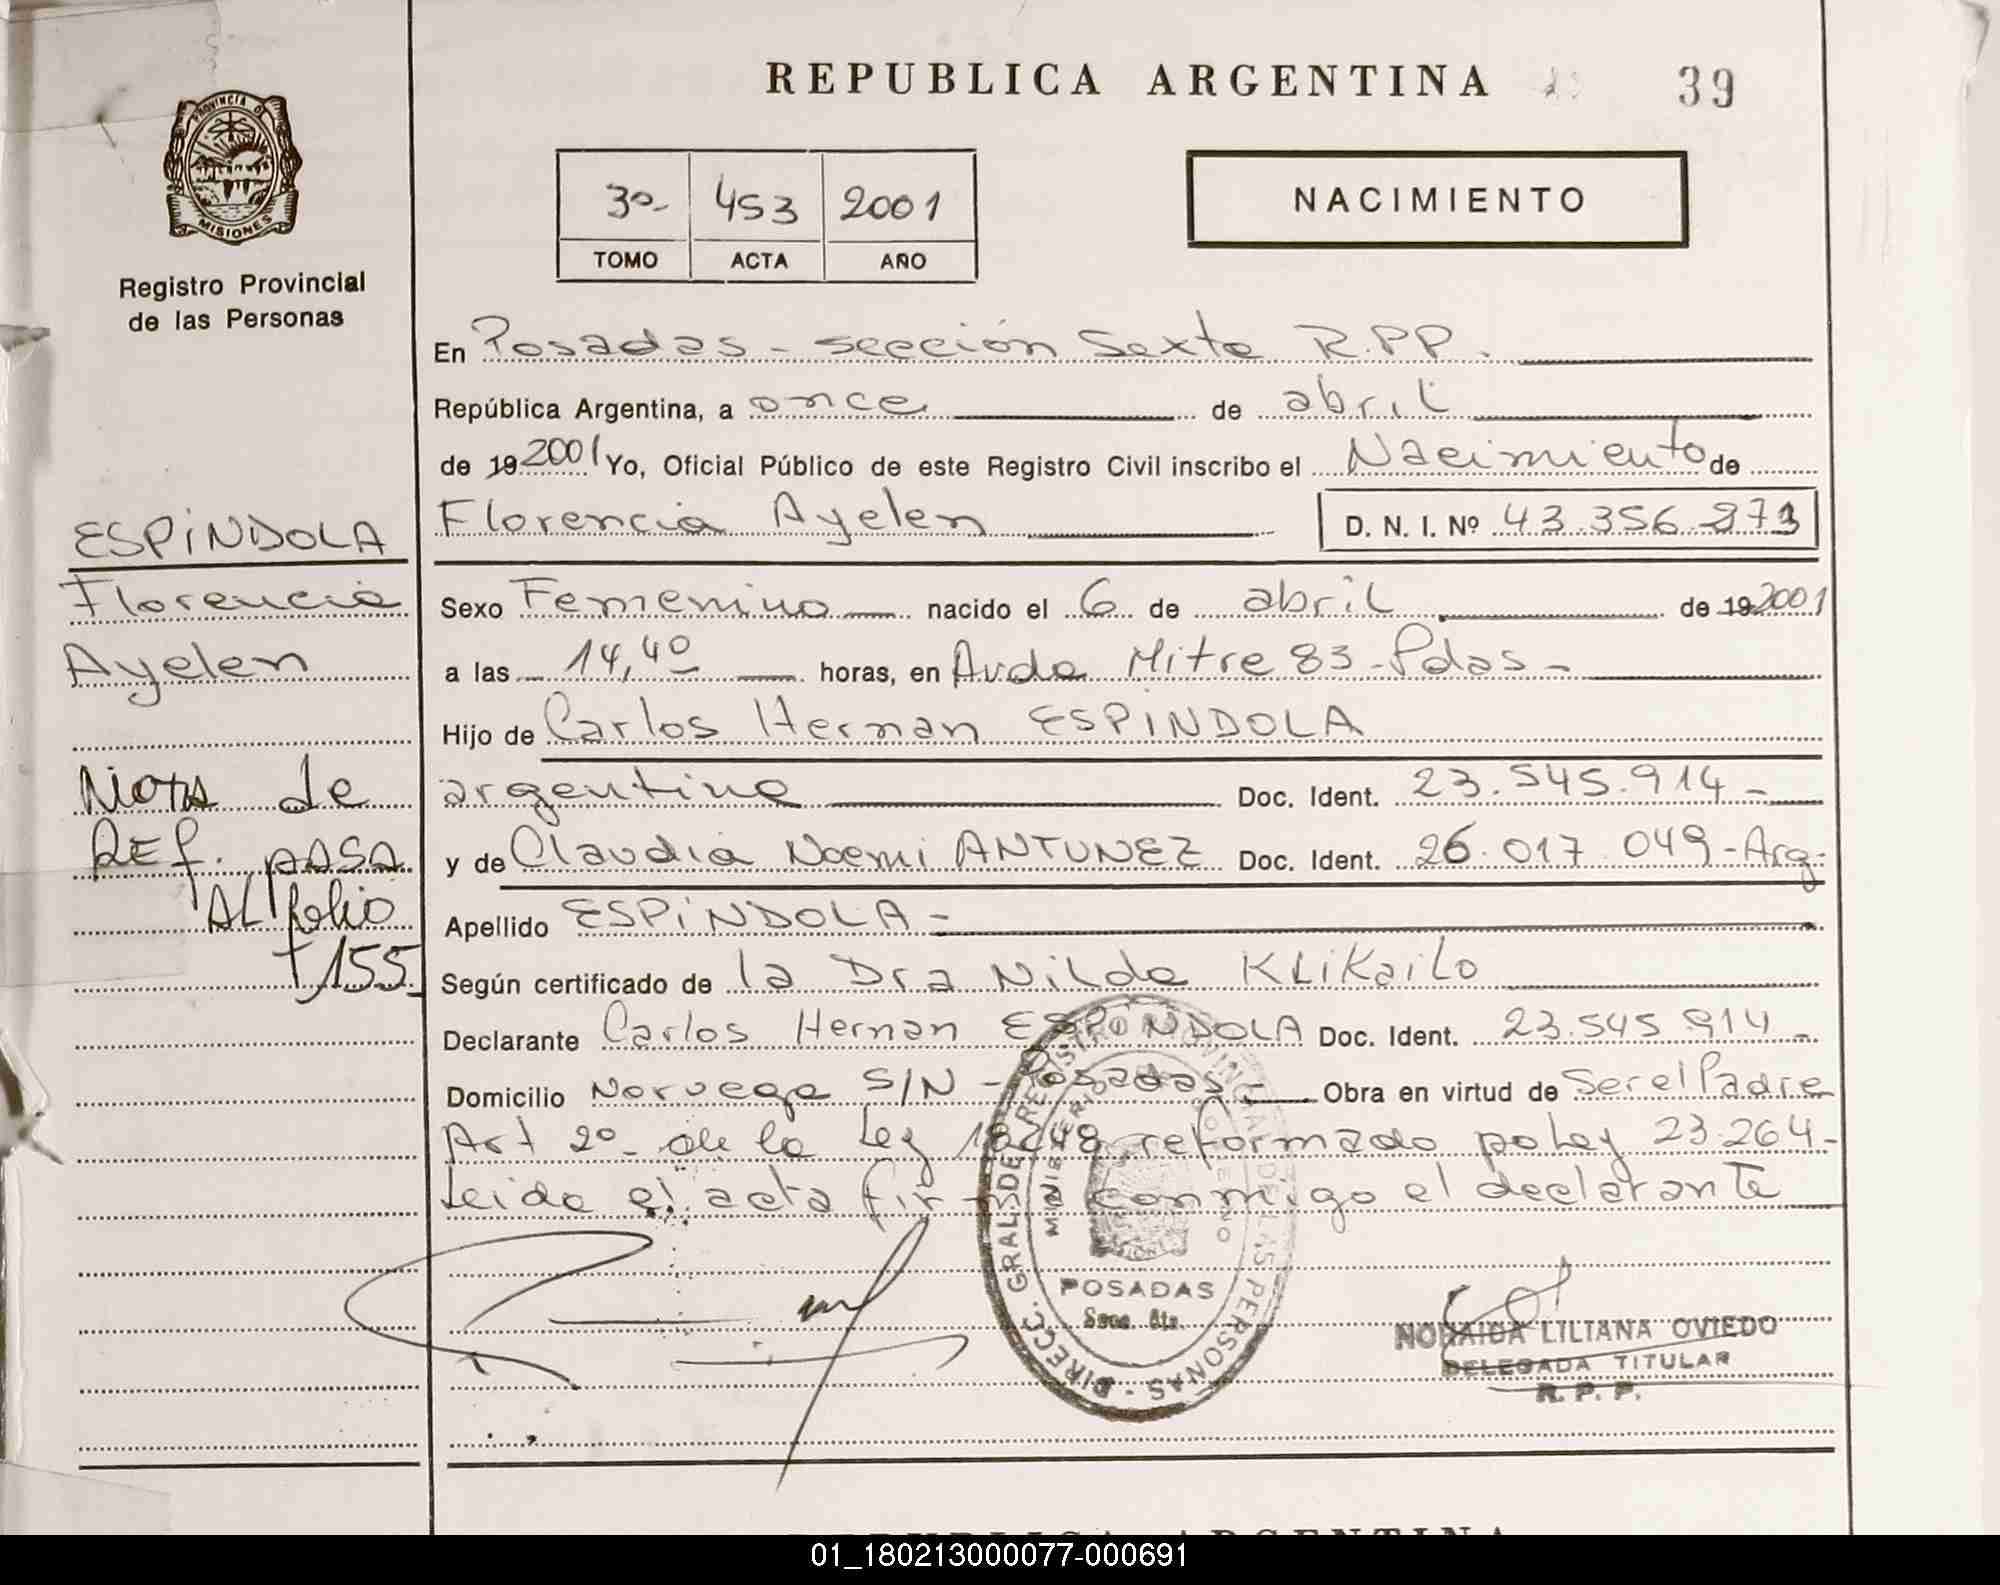 REPUBLICA ARGENTINA 39
PROVINCIA D
MISIONES
Registro Provincial
de las Personas
3º- 453 2001
TOMO ACTA AÑO
NACIMIENTO
En Posadas - sección Sexta R.P.P.
República Argentina, a once de abril
de 19 2001 Yo, Oficial Público de este Registro Civil inscribo el Nacimiento de
Florencia Ayelen D. N. I. Nº 43.356.273
Sexo Femenino nacido el 6 de abril de 19 2001
a las 14,40 horas, en Avda Mitre 83 - Pdas -
Hijo de Carlos Hernan ESPINDOLA
argentino Doc. Ident. 23.545.914 -
y de Claudia Noemi ANTUNEZ Doc. Ident. 26.017.049 - Arg.
Apellido ESPíNDOLA -
Según certificado de la Dra Nilda KLiKailo
Declarante Carlos Hernan ESPíNDOLA Doc. Ident. 23.545.914 -
Domicilio Noruega S/N - Posadas - Obra en virtud de Ser el Padre
Art 2º de la Ley 18248 reformado po Ley 23.264 -
Leida el acta firma conmigo el declarante
ESPíNDOLA
Florencia
Ayelen
Nota de
REf. pASA
AL folio
155
DIRECC. GRAL. DE REGISTRO PROVINCIAL DE LAS PERSONAS -
MINISTERIO DE GOBIERNO
POSADAS
Secc. 6ta.
NORAIDA LILIANA OVIEDO
DELEGADA TITULAR
R. P. P.
REPUBLICA ARGENTINA
01_180213000077-000691